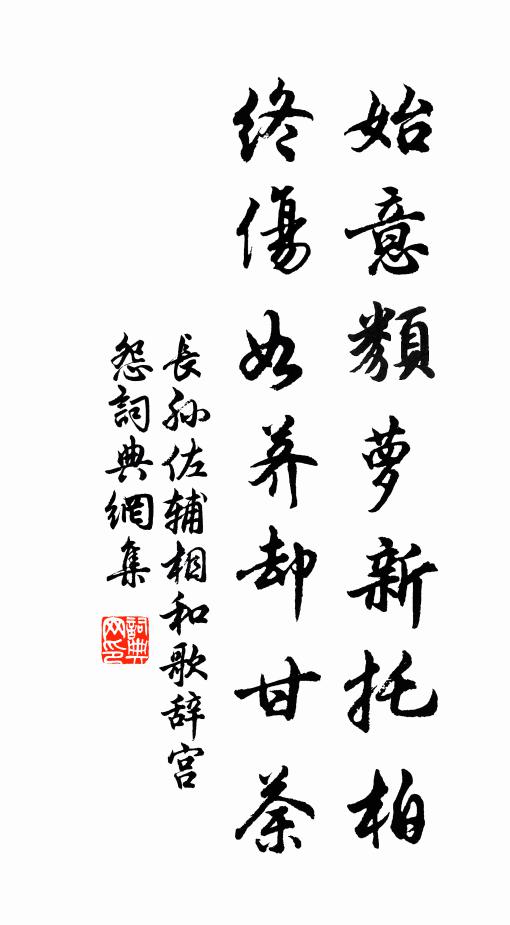 始意類萝新托柏
終傷如荠却甘荼
長孫佐輔相和歌辞宫
怨詞典網集
詞典
网印